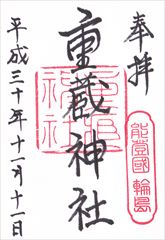 奉拝
能登國 輪島
重蔵神社
平成三十年十一月十一日